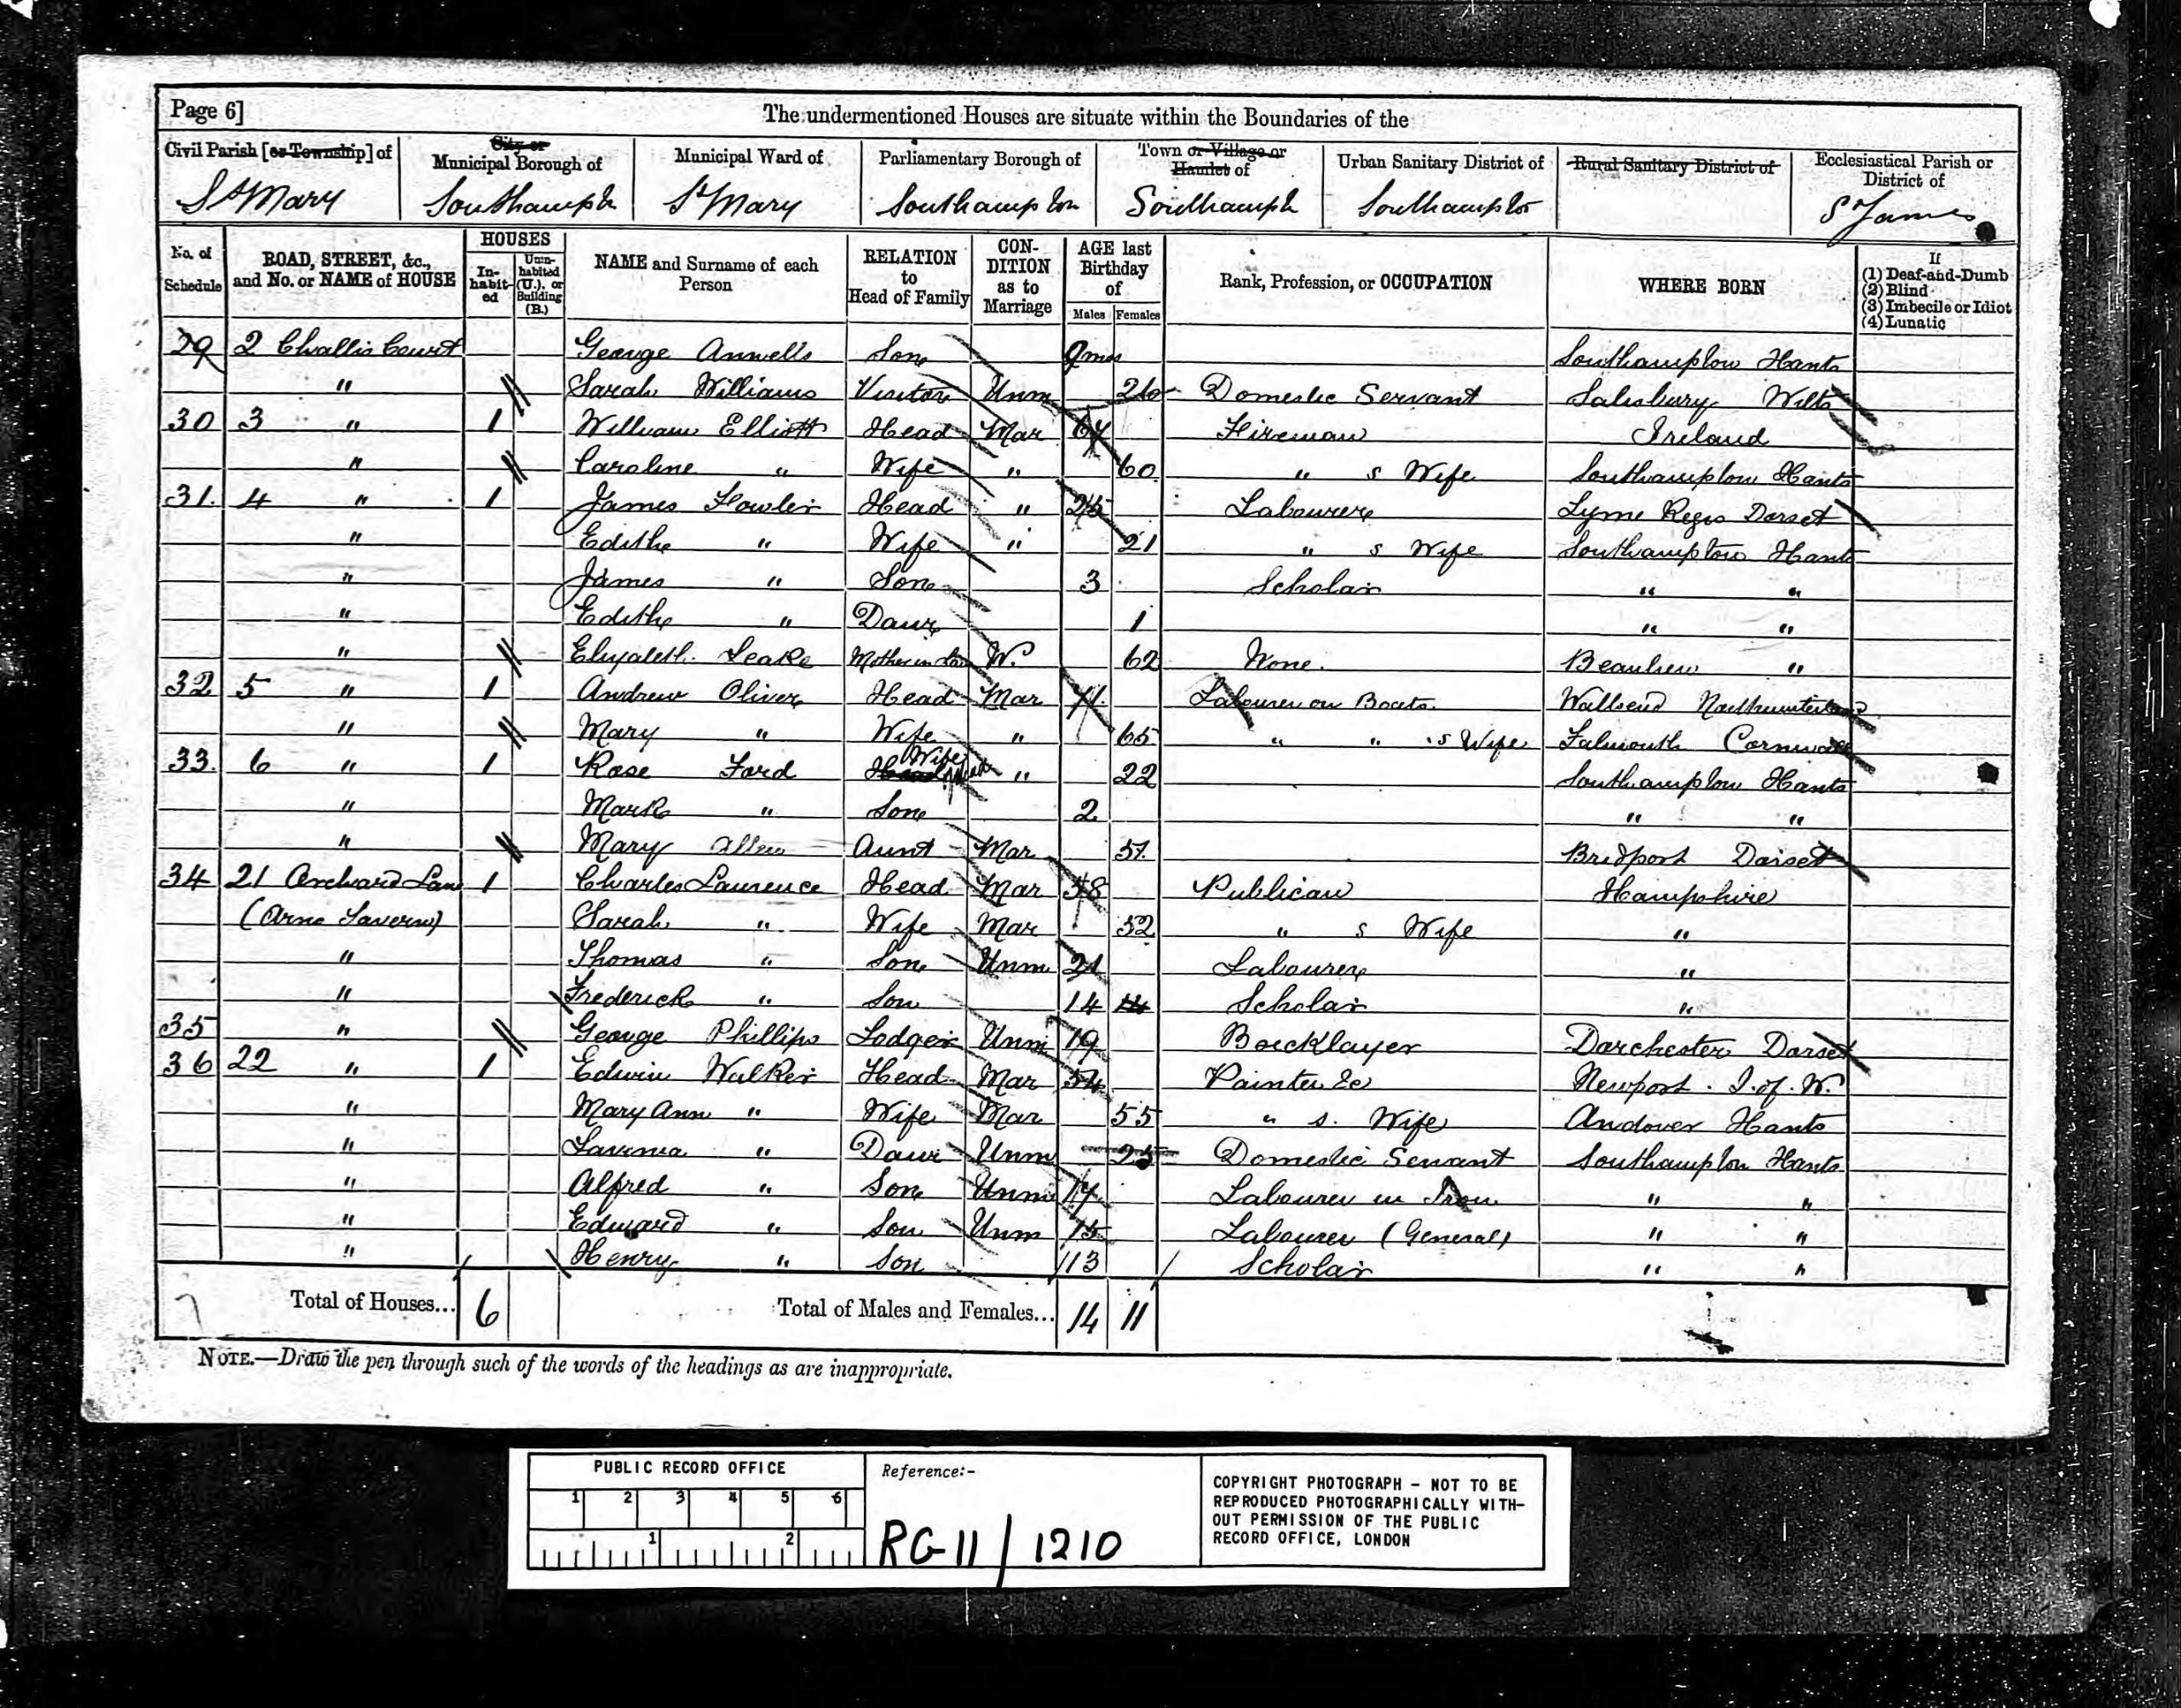 Page 6]
The undermentioned Houses are situate within the Boundaries of the
Civil Parish [or Township] of
City or Municipal Borough of
Municipal Ward of
Parliamentary Borough of
Town or Village or Hamlet of
Urban Sanitary District of
Rural Sanitary District of
Ecclesiastical Parish or District of
St Mary Southampton St Mary Southampton Southampton Southampton St James
No. of Schedule
ROAD, STREET, &c., and No. or NAME of HOUSE
HOUSES
Inhabited
Uninhabited (U.), or Building (B.)
NAME and Surname of each Person
RELATION to Head of Family
CONDITION as to Marriage
AGE last Birthday of
Males Females
Rank, Profession, or OCCUPATION
WHERE BORN
If
(1) Deaf-and-Dumb
(2) Blind
(3) Imbecile or Idiot
(4) Lunatic
29 2 Challis Court George Son 9 mos Southampton Hants
" Sarah Williams Visitor Unm 26 Domestic Servant Salisbury Wilts
30 3 " 1 William Elliott Head Mar 64 Fireman Ireland
" Caroline " Wife " 60 " s Wife Southampton Hants
31. 4 " 1 James Fowler Head " 25 Labourer Lyme Regis Dorset
" Edith " Wife " 21 " s Wife Southampton Hants
" James " Son 3 Scholar " "
" Edith " Daur 1 " "
" Elizabeth Leake Mother in Law W. 62 None. Beaulieu "
32 5 " 1 Andrew Oliver Head Mar 71 Labourer on Boats. Wallsend Northumberland
" Mary " Wife " 65 " " s Wife Falmouth Cornwall
33. 6 " 1 Rose Ford Head Wife " 22 Southampton Hants
" Mark " Son 2 " "
" Mary Allen Aunt Mar 57 Bridport Dorset
34 21 Orchard Lane 1 Charles Laurence Head Mar 58 Publican Hampshire
(Arno Tavern) Sarah " Wife Mar 52 " s Wife "
" Thomas " Son Unm 21 Labourer "
" Frederick " Son 14 14 Scholar "
35 " George Phillips Lodger Unm 19 Bricklayer Dorchester Dorset
36 22 " 1 Edwin Walker Head Mar 54 Painter &c Newport. I. of W.
" Mary Ann " Wife Mar 55 " s. Wife Andover Hants
" Lavinia " Daur Unm 25 Domestic Servant Southampton Hants
" Alfred " Son Unm 17 Labourer in Iron " "
" Edward " Son Unm 15 Labourer (General) " "
" Henry " Son 13 Scholar " "
Total of Houses... 6 Total of Males and Females... 14 11
NOTE.—Draw the pen through such of the words of the headings as are inappropriate.
PUBLIC RECORD OFFICE
1 2 3 4 5 6
1 2
Reference:-
RG 11 / 1210
COPYRIGHT PHOTOGRAPH - NOT TO BE
REPRODUCED PHOTOGRAPHICALLY WITH-
OUT PERMISSION OF THE PUBLIC
RECORD OFFICE, LONDON